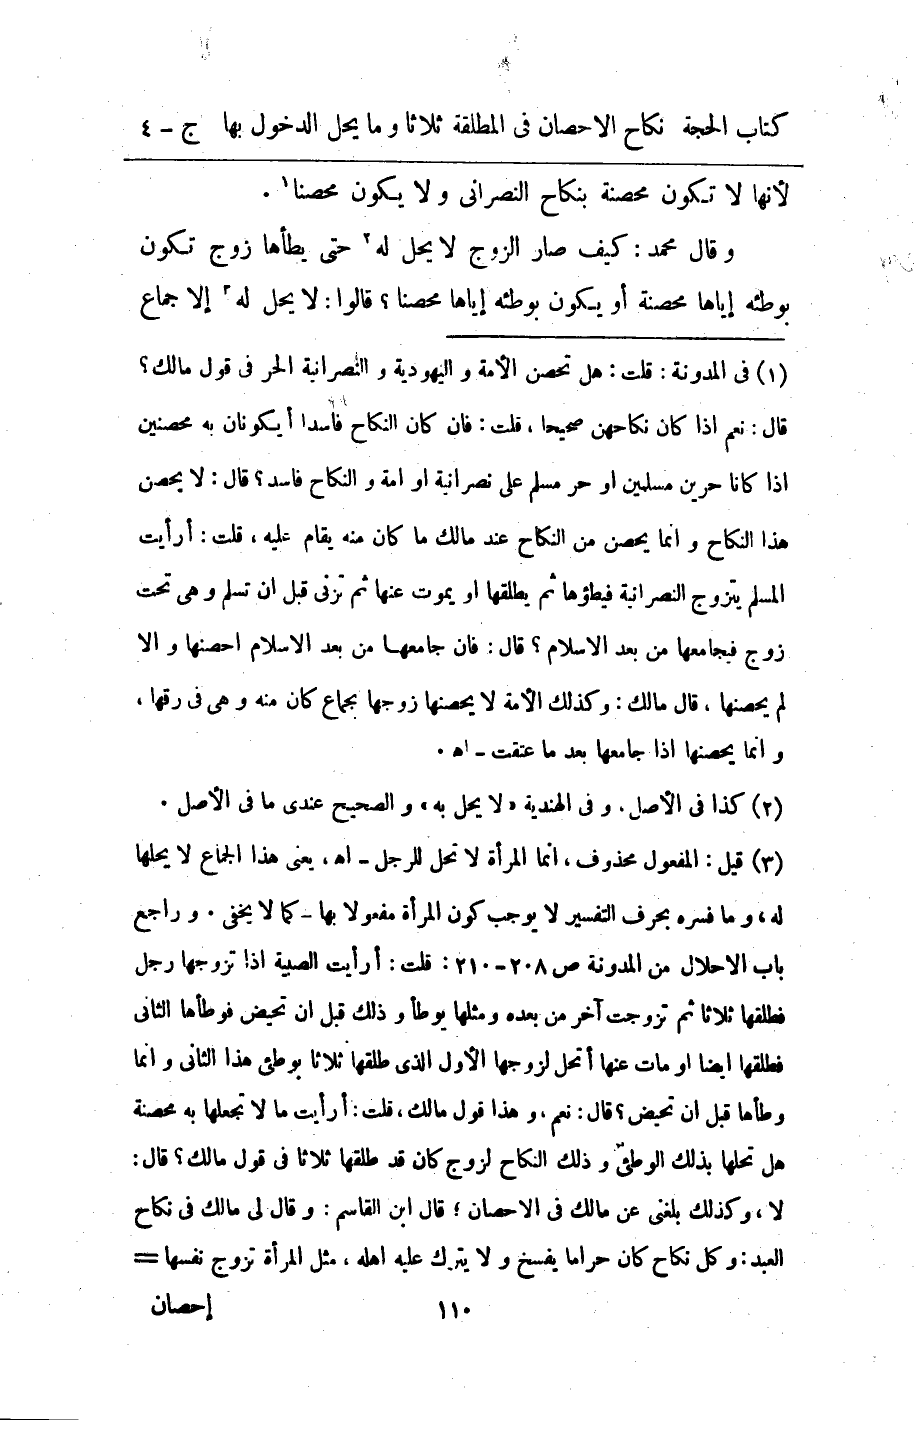 كتاب الحجة نكاح الاحصان فى المطلقة ثلاثا و ما يحل الدخول بها ج - ٤
لأنها لا تكون محصنة بنكاح النصرانى و لا يكون محصنا١ .
و قال محمد : كيف صار الزوج لا يحل له٢ حتى يطأها زوج تكون
بوطئه إياها محصنة أو يكون بوطئه إياها محصنا ؟ قالوا : لا يحل له٣ إلا جماع
(١) فى المدونة : قلت : هل تحصن الأمة و اليهودية و النصرانية الحر فى قول مالك ؟
قال : نعم اذا كان نكاحهن صحيحا ، قلت : فان كان النكاح فاسدا أيكونان به محصنين
اذا كانا حرين مسلمين او حر مسلم على نصرانية او امة و النكاح فاسد ؟ قال : لا يحصن
هذا النكاح و انما يحصن من النكاح عند مالك ما كان منه يقام عليه ، قلت : أرأيت
المسلم يتزوج النصرانية فيطؤها ثم يطلقها او يموت عنها ثم تزنى قبل ان تسلم و هى تحت
زوج فيجامعها من بعد الاسلام ؟ قال : فان جامعها من بعد الاسلام احصنها و الا
لم يحصنها ، قال مالك : وكذلك الأمة لا يحصنها زوجها بجماع كان منه و هى فى رقها ،
و انما يحصنها اذا جامعها بعد ما عتقت - اه .
(٢) كذا فى الأصل . و فى الهندية « لا يحل به » و الصحيح عندى ما فى الأصل .
(٣) قيل : المفعول محذوف ، انما المرأة لا تحل للرجل - اه ، يعنى هذا الجماع لا يحلها
له ، و ما فسره بحرف التفسير لا يوجب كون المرأة مفعولا بها - كما لا يخفى . و راجع
باب الاحلال من المدونة ص ٢٠٨-٢١٠ : قلت : أرأيت الصبية اذا تزوجها رجل
فطلقها ثلاثا ثم تزوجت آخر من بعده و مثلها يوطأ و ذلك قبل ان تحيض فوطأها الثانى
فطلقها ايضا او مات عنها أتحل لزوجها الأول الذى طلقها ثلاثا بوطئ هذا الثانى و انما
وطأها قبل ان تحيض ؟ قال : نعم ، و هذا قول مالك ، قلت : أرأيت ما لا تجعلها به محصنة
هل تحلها بذلك الوطئ و ذلك النكاح لزوج كان قد طلقها ثلاثا فى قول مالك ؟ قال :
لا ، وكذلك بلغنى عن مالك فى الاحصان ؛ قال ابن القاسم : و قال لى مالك فى نكاح
العبد : و كل نكاح كان حراما يفسخ و لا يترك عليه اهله ، مثل المرأة تزوج نفسها =
١١٠
إحصان